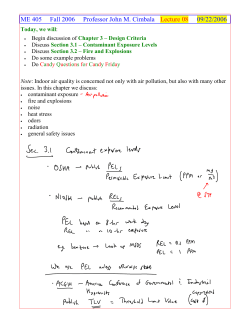 ME 405 Fall 2006 Professor John M. Cimbala Lecture 08 09/22/2006
Today, we will:
• Begin discussion of Chapter 3 – Design Criteria
• Discuss Section 3.1 – Contaminant Exposure Levels
• Discuss Section 3.2 – Fire and Explosions
• Do some example problems
• Do Candy Questions for Candy Friday
Note: Indoor air quality is concerned not only with air pollution, but also with many other
issues. In this chapter we discuss:
• contaminant exposure – air pollution
• fire and explosions
• noise
• heat stress
• odors
• radiation
• general safety issues
Sec. 3.1 Contaminant exposure levels
- OSHA → publish PEL
Permissible Exposure Limit (PPM or mg/m3)
- NIOSH → publish REL
Recommended Exposure Level
PEL based on 8-hr work day
REL " " 10-hr exposure
e.g. benzene → Look up MSDS REL = 0.1 PPM
PEL = 1 PPM
We use PEL unless otherwise stated
- ACGIH – American Conference of Governmental & Industrial
Hygienists
Publish TLV = Threshold Limit Value